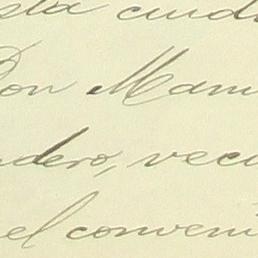 sta ciud
Don Man
ndero, veci
el conveni